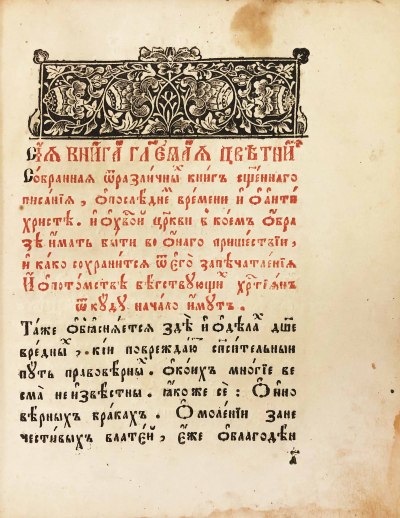 Сїѧ книга гл҃емаѧ цвѣтни́
Собранная ѿразличны́ книгъ сщ҃еннаго
писанїѧ, ѻпослѣдне́ времени и ѻанти
христѣ. и ѻхв҃ой цр҃кви в коемъ ѻбра
зѣ и҆мать быти во ѻ҆наго пришествїи,
и҆ како сохранитсѧ ѿ є҆гѡ запечатленїѧ
И҆ ѻпотомствѣ бѣгствующи́ хр҃тїѧн
ѿкꙋдꙋ начало и҆мꙋтъ.
Таже ѻб̾ѧснѧетсѧ здѣ и҆ ѻдѣла́ дш҃е
вредны́, кїи повреждаю́ сп҃сительныи
пꙋть правовѣрны́. ѻкоихъ многїе ве
сма̀ не и҆звѣстны. ꙗкоже сѐ: Ѻ
вѣрныхъ бракахъ. Ѻ моленїи за не
честивыхъ властей, є҆же ѻблагоде́н
а҃